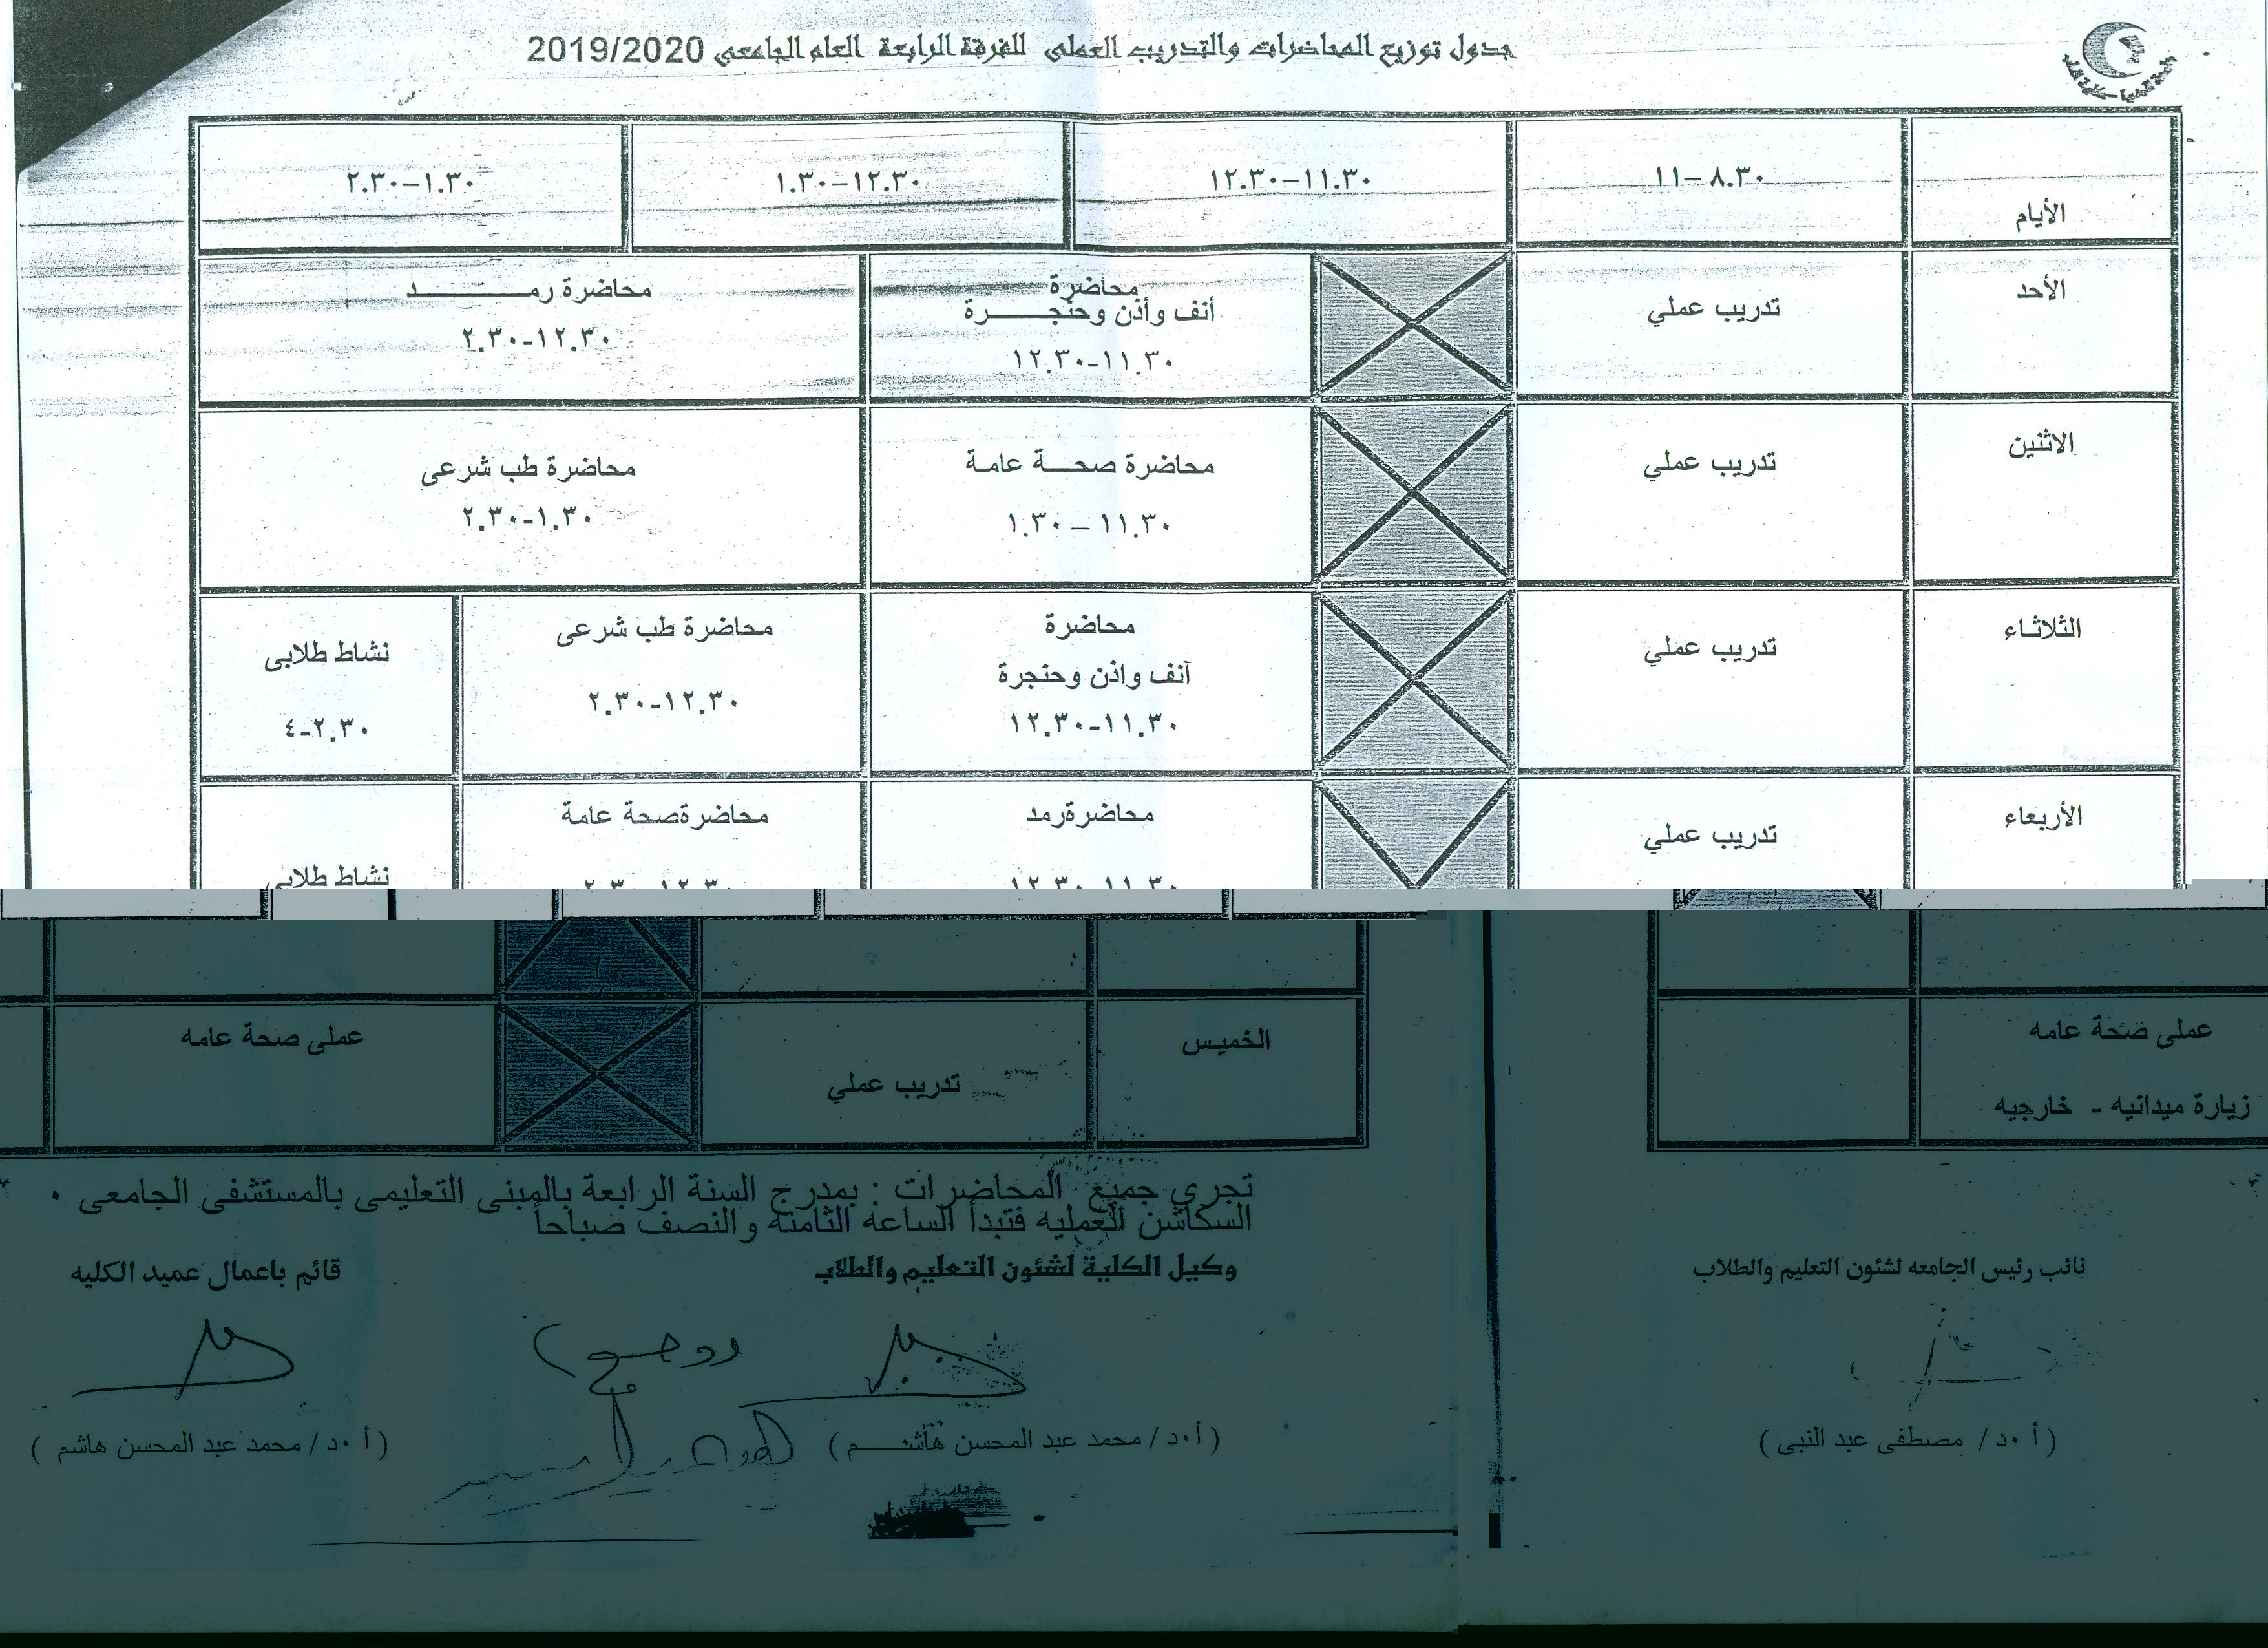 جدول توزيع المحاضرات والتدريب العملى للفرقة الرابعة العام الجامعى 2019/2020
الأيام
٨.٣٠ – ١١
١١.٣٠–١٢.٣٠
١٢.٣٠–١.٣٠
١.٣٠–٢.٣٠
الأحد
تدريب عملي
محاضرة
أنف وأذن وحنجـــــرة
١١.٣٠-١٢.٣٠
محاضرة رمـــــــد
١٢.٣٠-٢.٣٠
الاثنين
تدريب عملي
محاضرة صحـــة عامـة
١١.٣٠ – ١.٣٠
محاضرة طب شرعى
١.٣٠-٢.٣٠
الثلاثاء
تدريب عملي
محاضرة
آنف واذن وحنجرة
١١.٣٠-١٢.٣٠
محاضرة طب شرعى
١٢.٣٠-٢.٣٠
نشاط طلابى
٢.٣٠-٤
الأربعاء
تدريب عملي
محاضرةرمد
١١.٣٠-١٢.٣٠
محاضرةصحة عامة
١٢.٣٠-٢.٣٠
نشاط طلابى
الخميس
تدريب عملي
عملى صحة عامه
عملى صحة عامه
زيارة ميدانيه - خارجيه
تجري جميع المحاضرات : بمدرج السنة الرابعة بالمبنى التعليمى بالمستشفى الجامعى ٠
السكاشن العمليه فتبدأ الساعه الثامنه والنصف صباحاً
وكيل الكلية لشئون التعليم والطلاب
قائم باعمال عميد الكليه
نائب رئيس الجامعه لشئون التعليم والطلاب
( أ٠د / محمد عبد المحسن هاشـــم )
( أ ٠د / محمد عبد المحسن هاشم )
( أ ٠د / مصطفى عبد النبى )